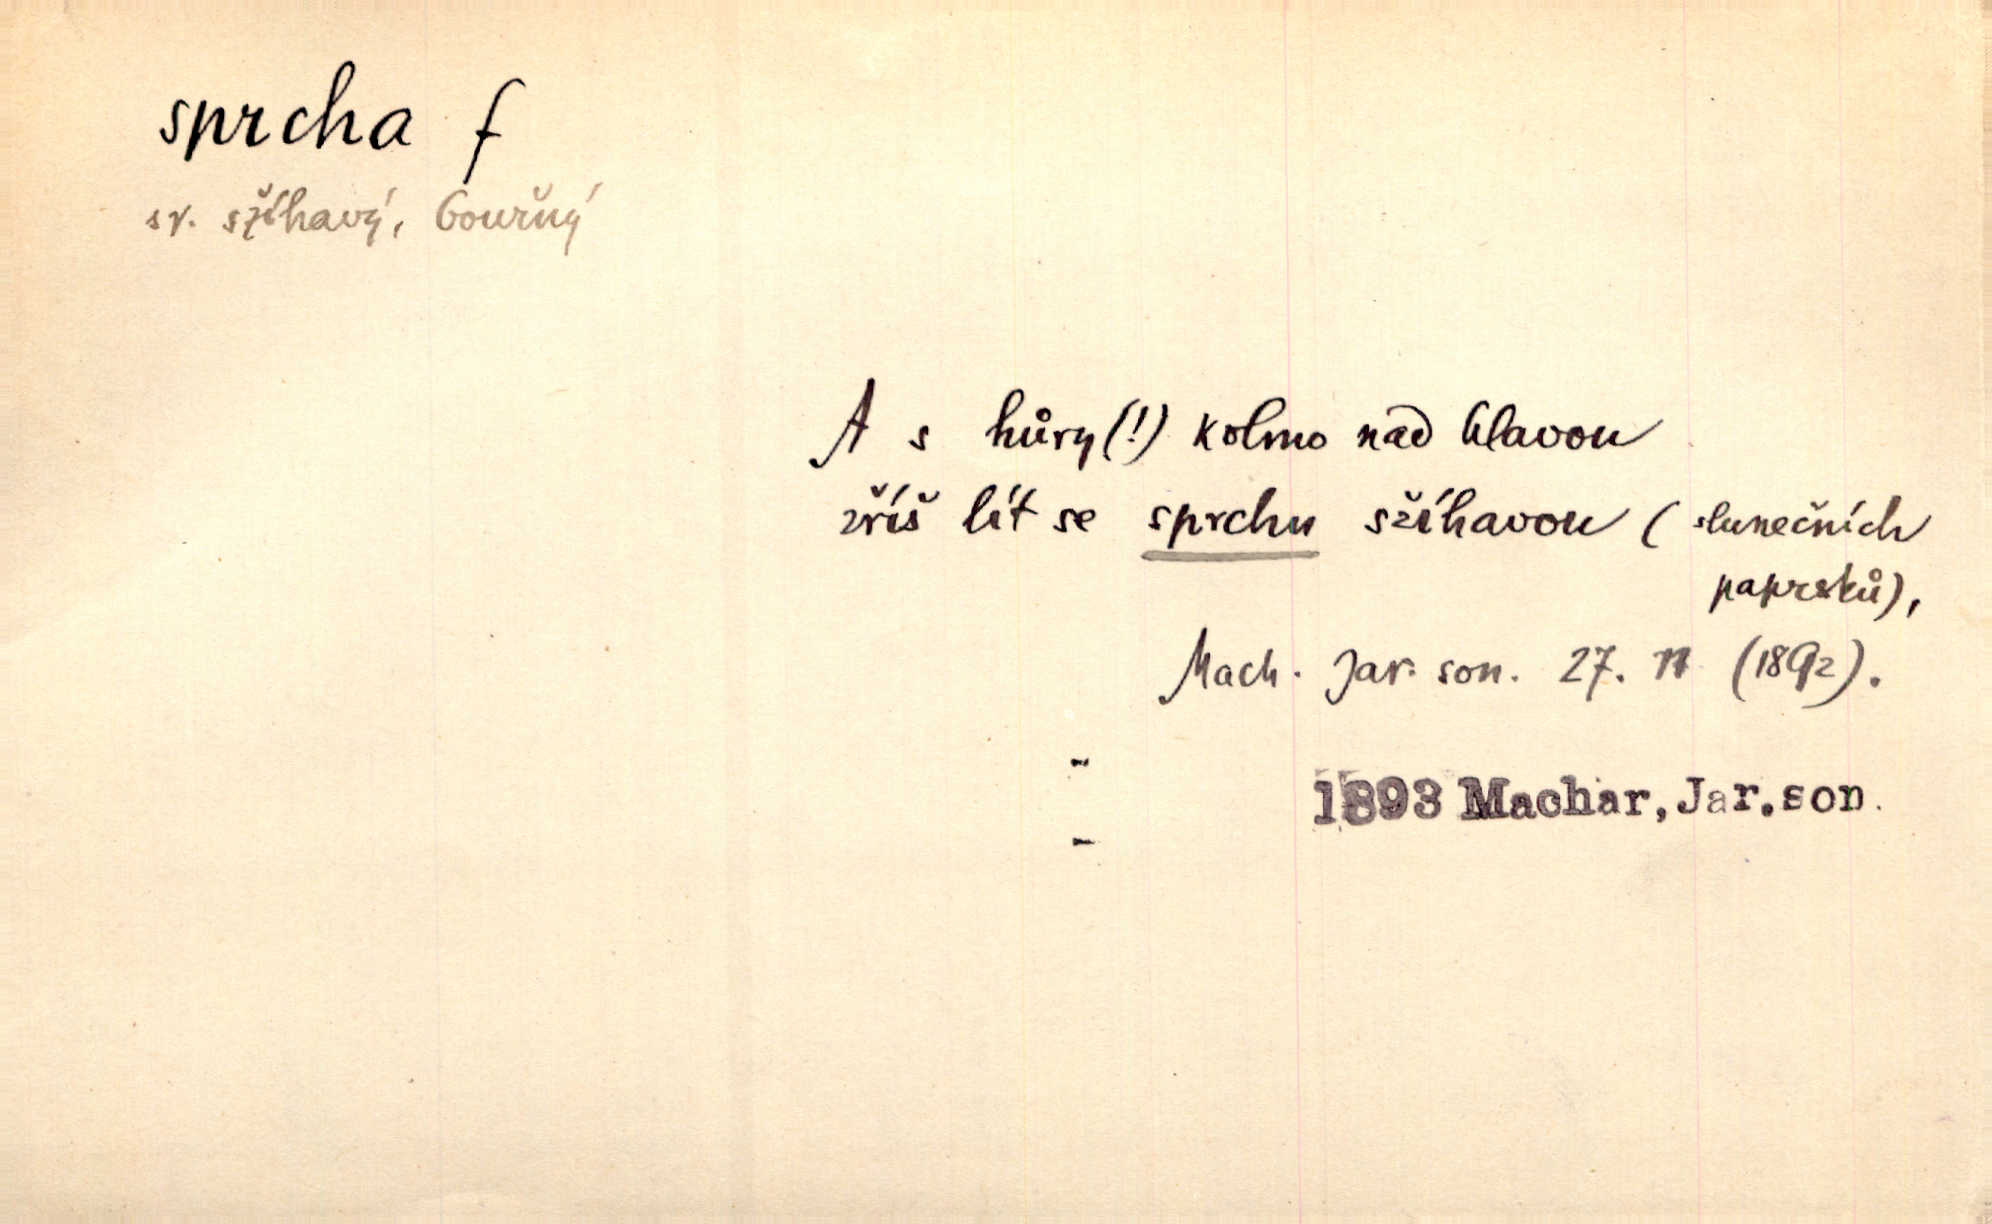 sprcha f
sr. sžíhavý, bouřný
A s hůry(!) kolmo nad hlavou
zříš lít se sprchu sžíhavou (slunečních
paprsků),
Mach. Jar. son. 27. (1892).
-
1893 Machar, Jar.son.
-